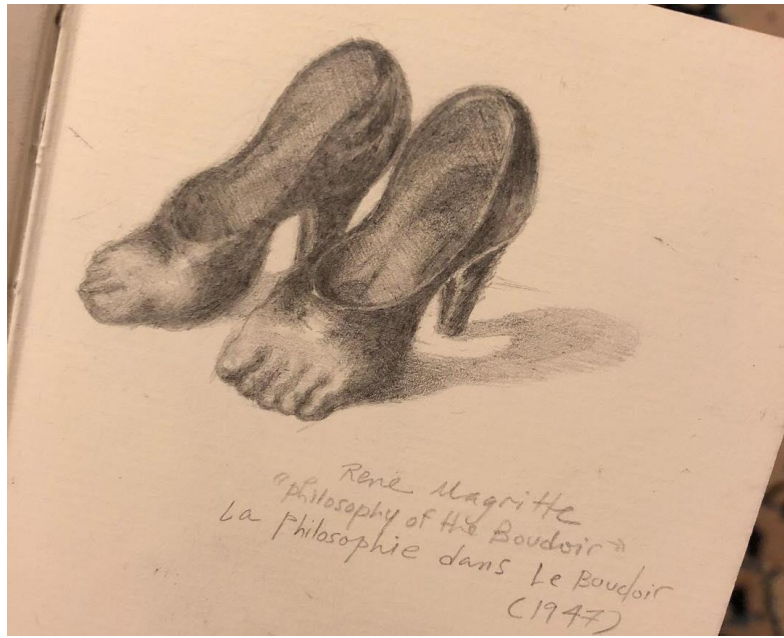 René Magritte
"philosophy of the Boudoir"
La Philosophie dans Le Boudoir
(1947)